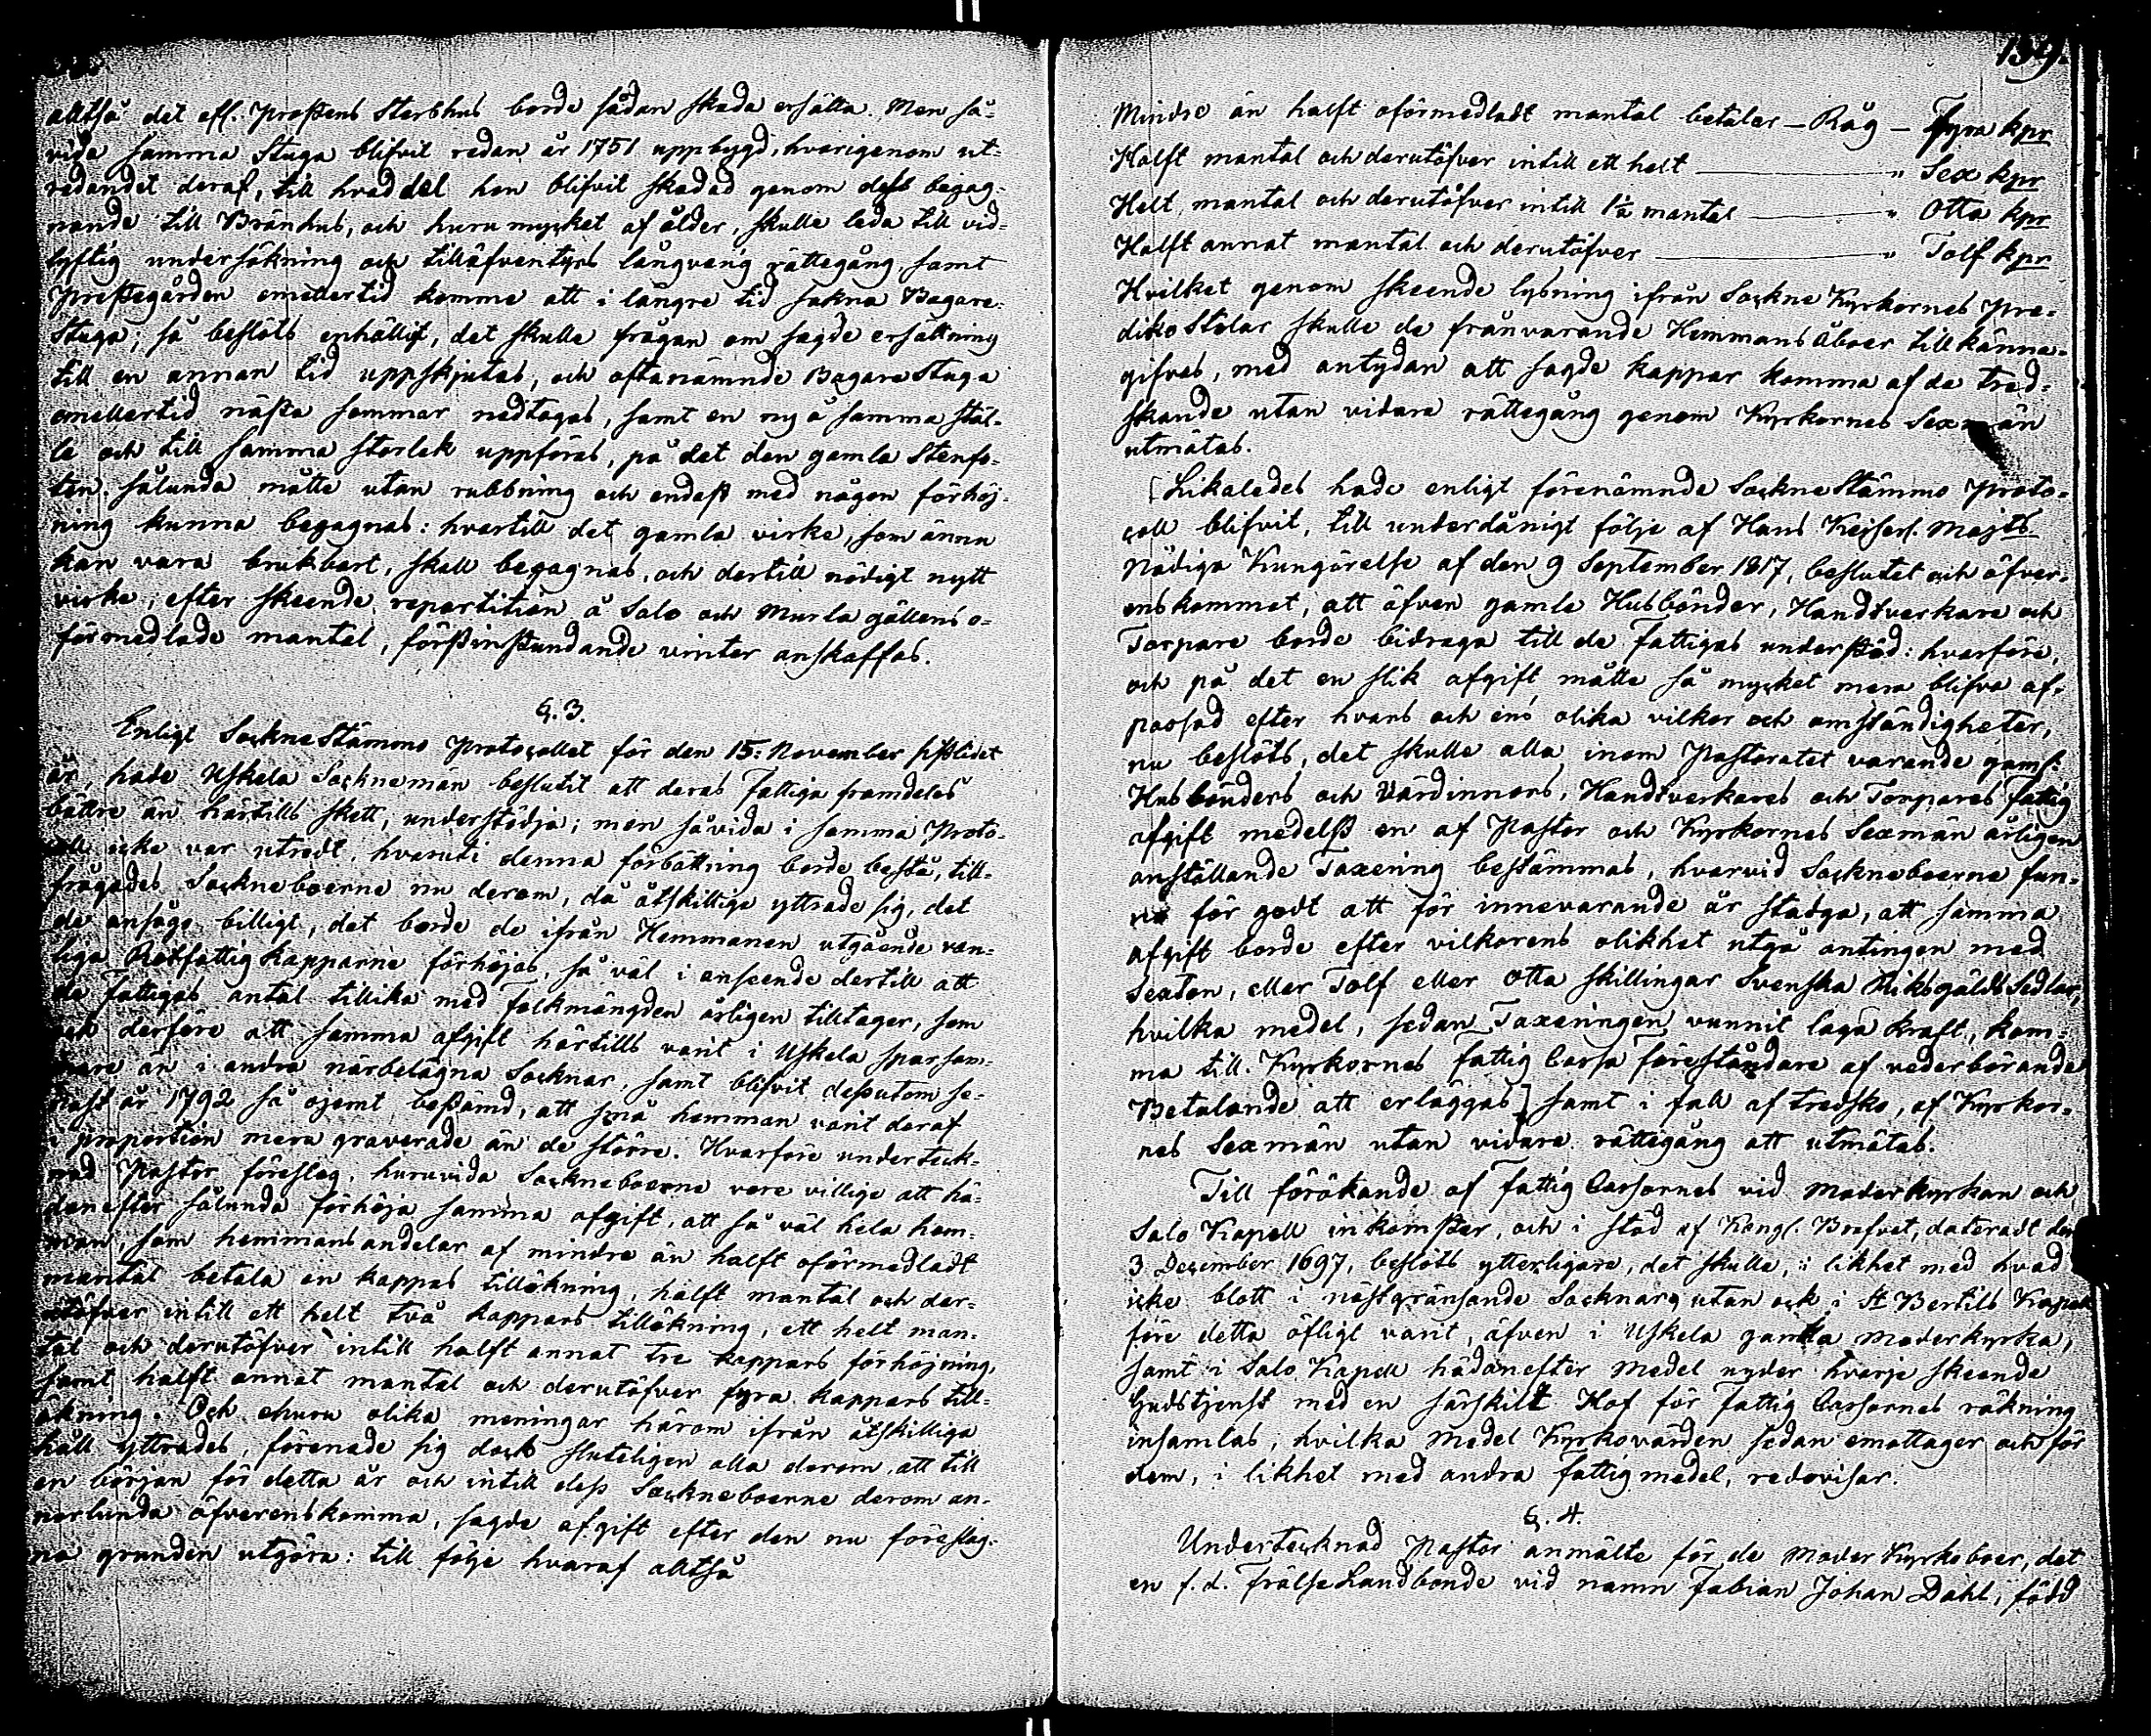 alltså det afl. Prostens Sterbhus borde sådan skada ersätta. Men så-
vida samma Stuga blifvit redan år 1751 uppbygd, hvarigenom ut-
redandet deraf, till hvad del hon blifvit skadad genom dess begag-
nande till Bränhus, och huru mycket af ålder, skulle leda till vid-
lyftig undersökning och tilläfventyrs långvarig rättegång, samt
Prestegården emellertid komme att i längre tid sakna Bagare-
Stuga; så beslöts enhälligt, det skulle frågan om sagde ersättning
till en annan tid uppskjutas, och oftanämnde Bagare Stuga
emellertid nästa sommar nedtagas, samt en ny å samma stäl-
le och till samma storlek uppföras, på det den gamla Stenfo-
ten sålunda måtte utan rubbning och endast med någon förhöj-
ning kunna begagnas: hvartill det gamla virke, som ännu
kan vara brukbart, skall begagnas, och dertill nödigt nytt
virke, efter skeende repartition å Salo och Murla gällens o-
förmedlade mantal, förstinstundande vinter anskaffas.
§. 3.
Enligt SockneStämmo Protocollet för den 15: November sistlidet
år, hade Uskela Sockneman beslutit att deras Fattiga framdeles
bättre än härtills skett, understödja; men såvida i samma Proto-
coll icke var utredt, hvaruti denna förbättring borde bestå, till-
frågades Sockneboerne nu derom, då åtskillige yttrade sig, det
de ansågo billigt, det borde de ifrån Hemmanen utgående van-
liga Rotfattig Kapparne förhöjas, så väl i anseende dertill att
de Fattigas antal tillika med Folkmängden årligen tilltager, som
ock derföre att samma afgift härtills varit i Uskela sparsam-
mare än i andra närbelägna Socknar, samt blifvit dessutom se-
nast år 1792 så ojemt bestämd, att små hemman varit deraf
i proportion mera graverade än de större. Hvarföre underteck-
nad Pastor föreslog, huruvida Sockneboerne vore villige att hä-
danefter sålunda förhöja samma afgift, att så väl hela hem-
man, som hemmansandelar af mindre än halft oförmedladt
mantal betala en kappas tillökning, halft mantal och der-
utöfver intill ett helt två kappars tillökning, ett helt man-
tal och derutöfver intill halft annat tre kappars förhöjning,
samt halft annat mantal och derutöfver fyra kappars till-
ökning. Och ehuru olika meningar härom ifrån åtskilliga
håll yttrades, förenade sig dock sluteligen alla derom, att till
en början för detta år och intill dess Sockneboerne derom an-
norlunda öfverenskomma, sagde afgift efter den nu föreslag-
na grunden utgöra: till följe hvaraf alltså
139.
Mindre än halft oförmedladt mantal betaler — Råg — Fyra kpr
Halft mantal och derutöfver intill ett helt ——— " Sex kpr
Helt mantal och derutöfver intill 1½ mantal ——— " Otta kpr
Halft annat mantal och derutöfver ——— " Tolf kpr
Hvilket genom skeende lysning ifrån Sockne Kyrkornes Pre-
dikoStolar skulle de frånvarande Hemmans Åboer tillkänna-
gifvas, med antydan att sagde kappar komma af de tred-
skande utan vidare rättegång genom Kyrkornes Sexmän
utmätas.
[Likaledes hade enligt förenämnde SockneStämmo Proto-
coll blifvit, till underdånigt följe af Hans Kejserl. Majts
Nådiga Kungörelse af den 9 September 1817, beslutet och öfver-
enskommet, att äfven gamle Husbönder, Handtverkare och
Torpare borde bidraga till de Fattigas understöd: hvarföre,
och på det en slik afgift måtte så mycket mera blifva af-
passad efter hvars och ens olika vilkor och omständigheter,
nu beslöts, det skulle alla inom Pastoratet varande gaml:
Husbönders och Värdinnors, Handtverkares och Torpares Fattig
afgift medelst en af Pastor och Kyrkornes Sexmän årligen
anställande Taxering bestämmas, hvarvid Sockneboerne fun-
no för godt att för innevarande år stadga, att samma
afgift borde efter vilkorens olikhet utgå antingen med
Sexton, eller Tolf eller Otta skillingar Svenska Riksgälds Sedlar,
hvilka medel, sedan Taxeringen vunnit laga kraft, kom-
ma till Kyrkornes Fattig Cassa föreståndare af vederbörande
Betalande att erläggas] samt i fall af tredsko, af Kyrkor-
nes Sexmän utan vidare rättegång att utmätas.
Till förökande af Fattig Cassornes vid Moderkyrkan och
Salo Kapell inkomster, och i stöd af Kongl. Brefvet, dateradt den
3 December 1697, beslöts ytterligare, det skulle, i likhet med hvad
icke blott i näst gränsande Socknar, utan ock i St Bertils Kapell
före detta öfligt varit, äfven i Uskela gamla moderkyrka,
samt i Salo Kapell hädanefter Medel under hvarje skeende
Gudstjenst med en särskilt Hof för Fattig Cassornes räkning
insamlas; hvilka Medel Kyrkovärden sedan emottager och för
dem, i likhet med andra fattigmedel, redovisar.
§. 4.
Undertecknad Pastor anmälte för de Moder Kyrkoboer, det
en f. d. Frälse Landbonde vid namn Fabian Johan Dahl, född